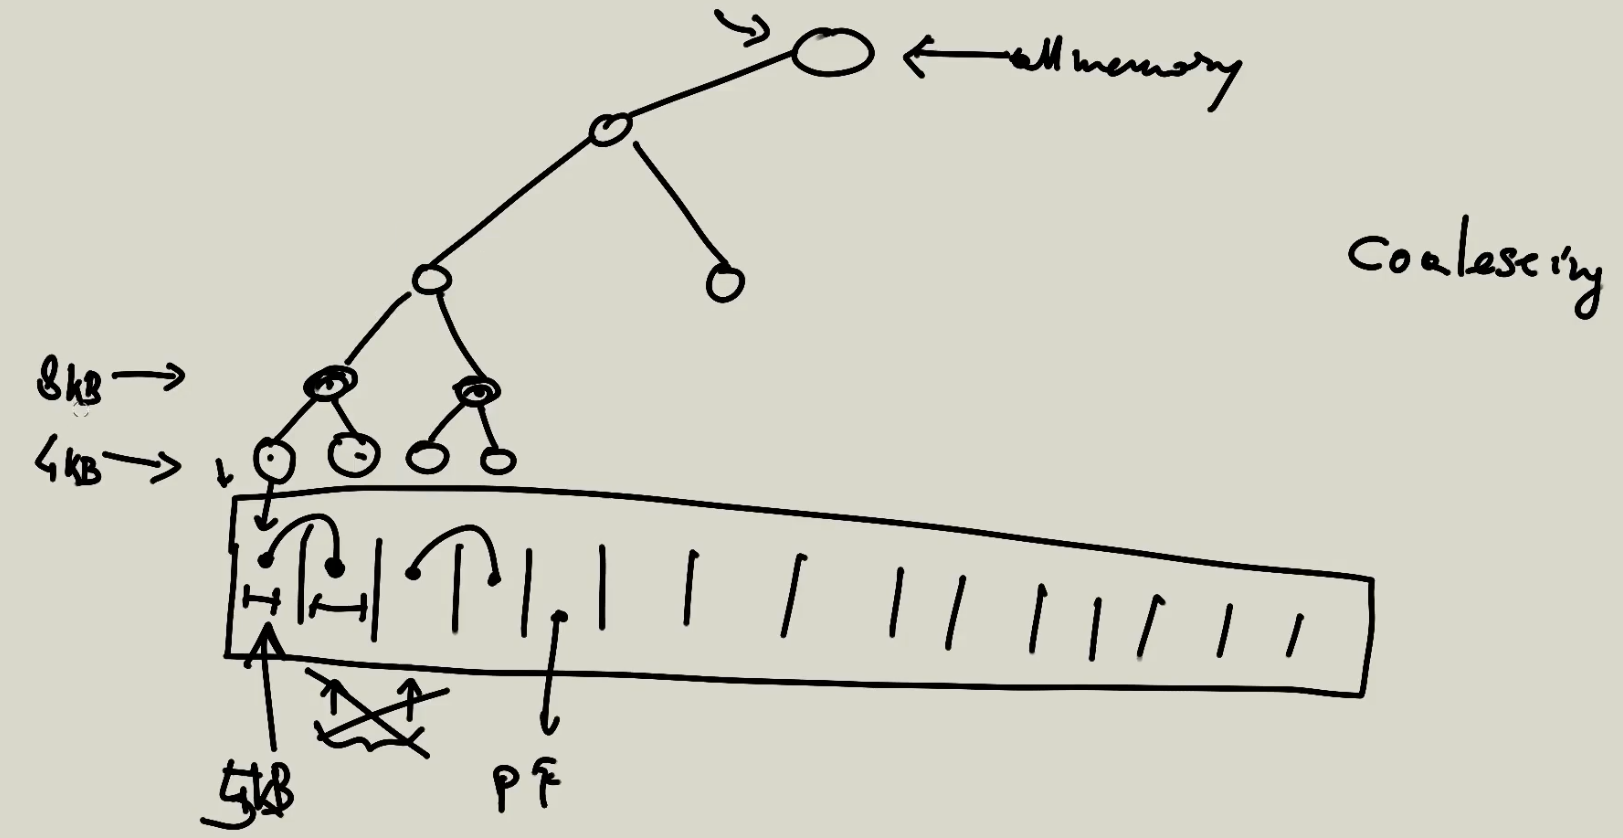 all memory
Coalescing
8KB
4KB
4KB
PF